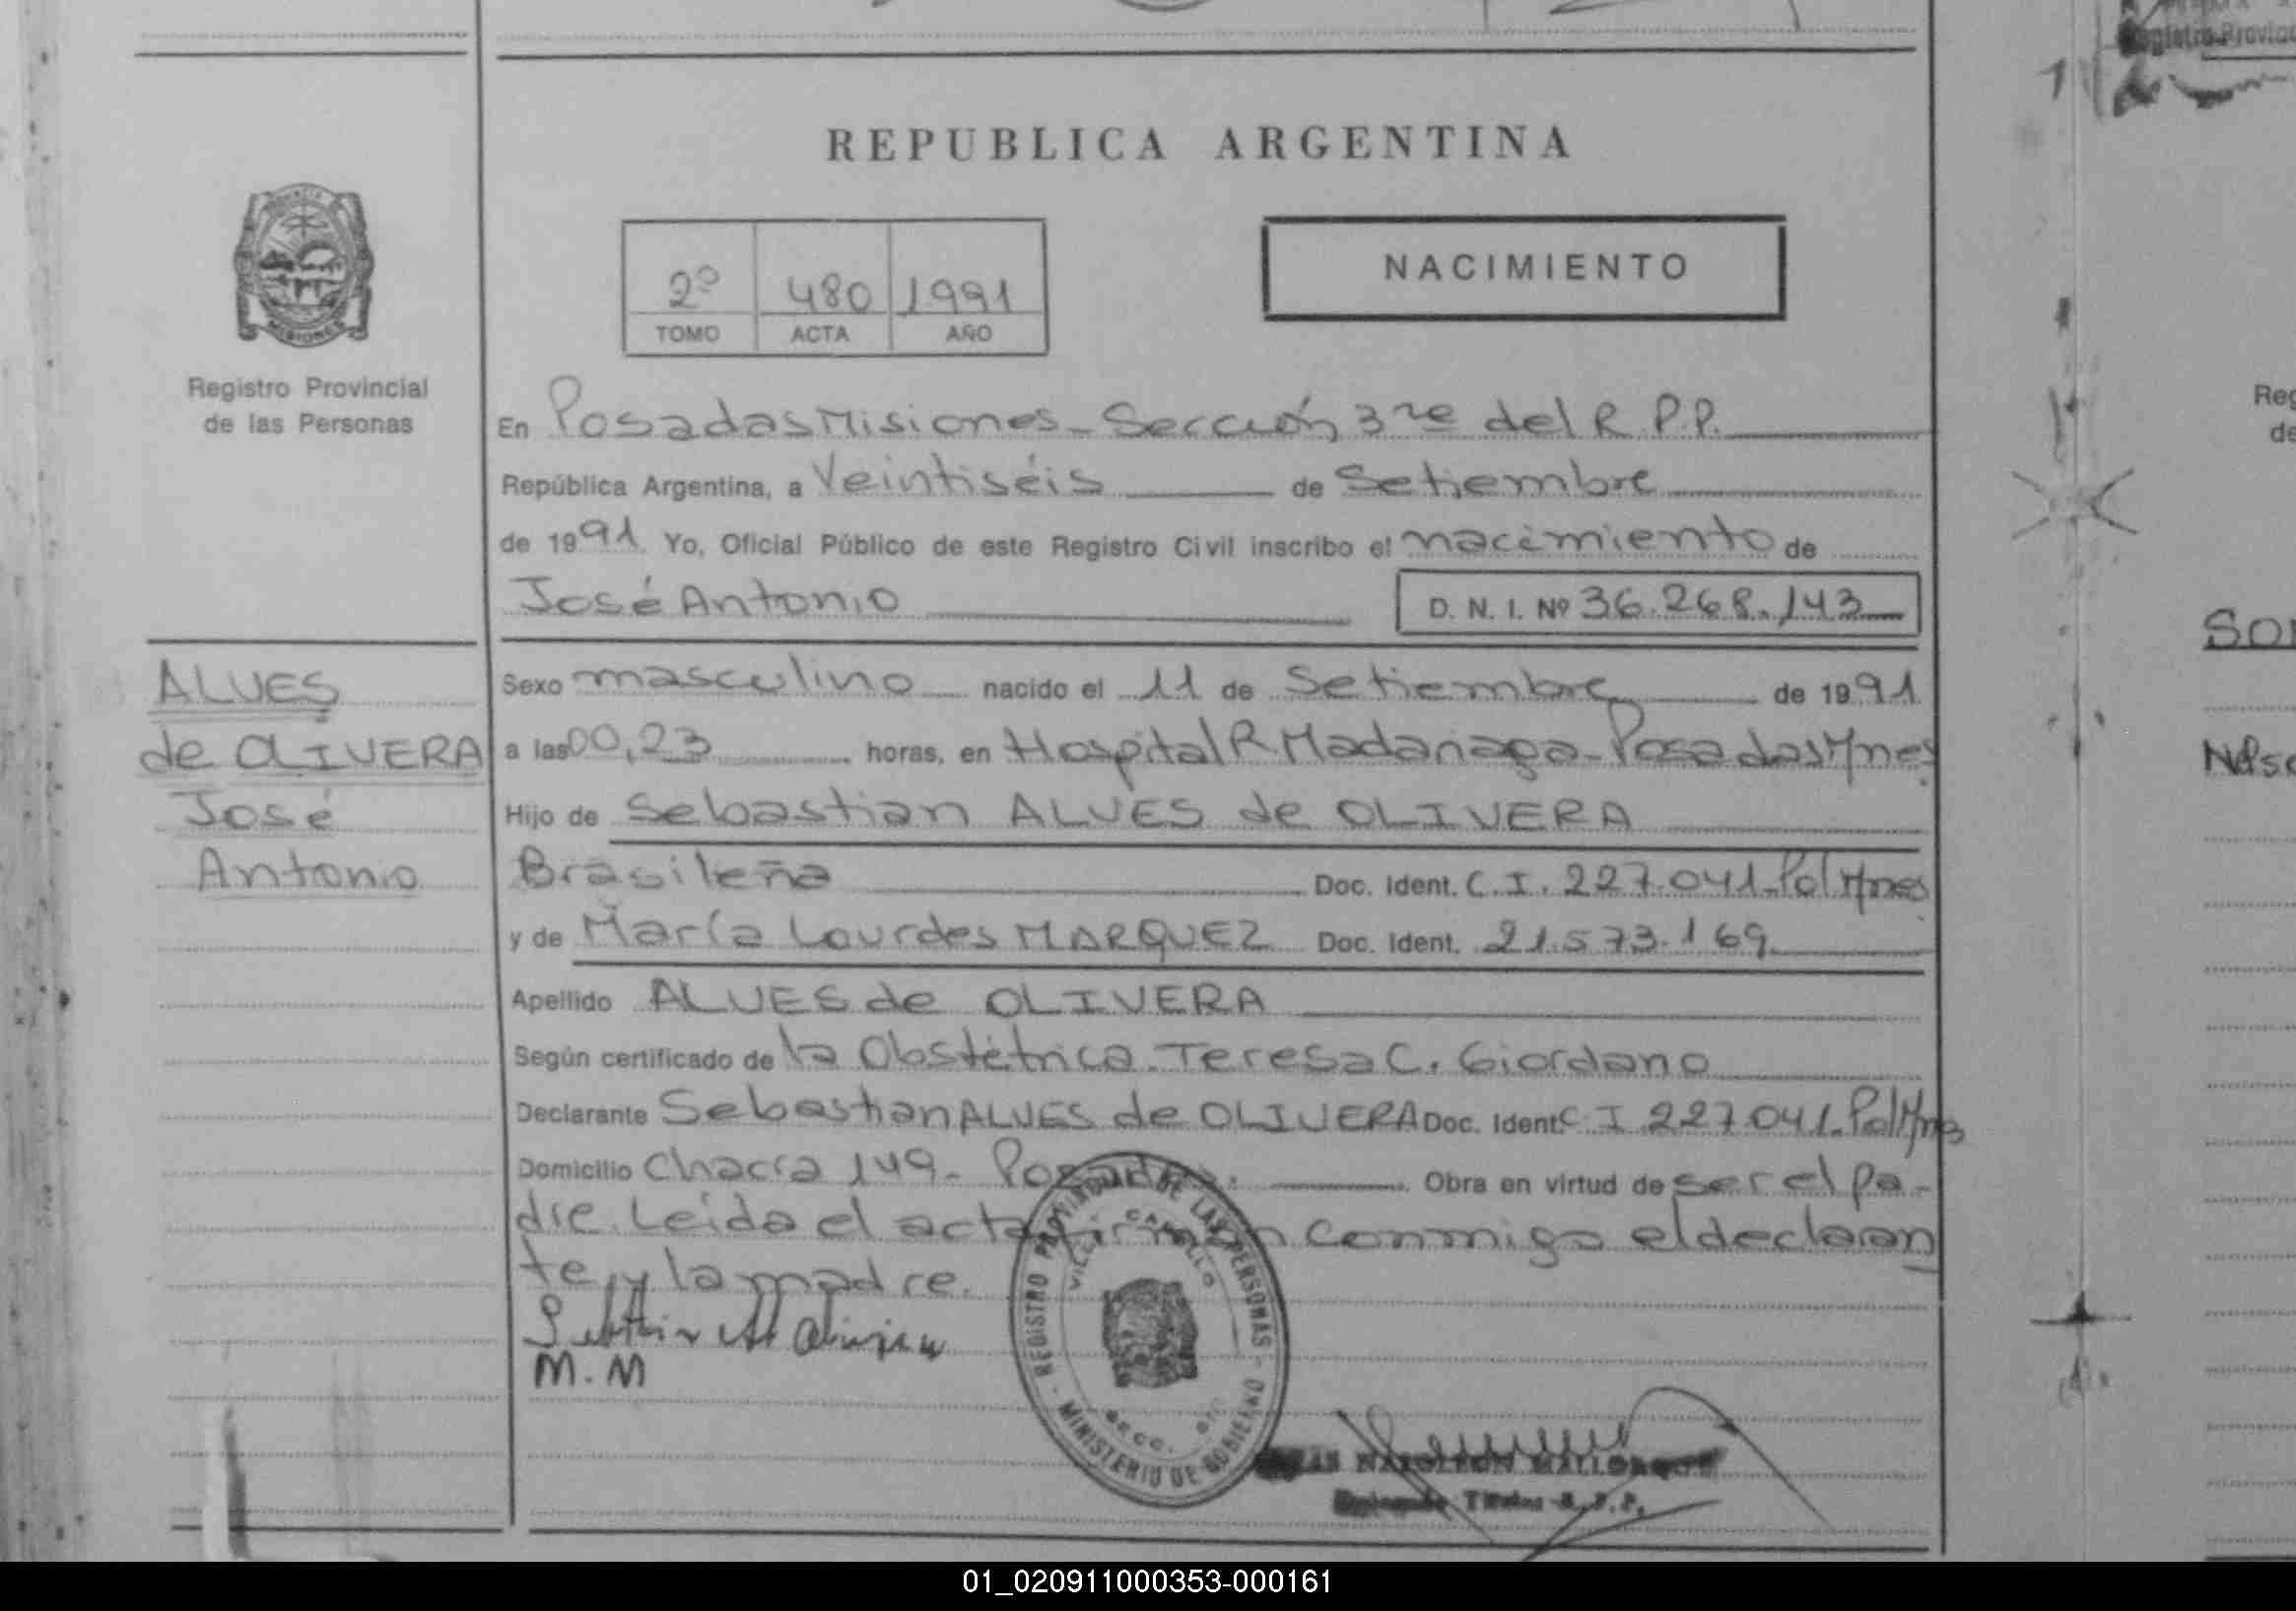 REPUBLICA ARGENTINA
NACIMIENTO
2º 480 1991
TOMO ACTA AÑO
MISIONES
Registro Provincial
de las Personas
En Posadas Misiones - Sección 3ra del R.P.P.
República Argentina, a Veintiséis de Setiembre
de 1991. Yo, Oficial Público de este Registro Civil inscribo el nacimiento de
José Antonio D. N. I. Nº 36.268.143
ALVES
de OLIVERA
José
Antonio
Sexo masculino nacido el 11 de Setiembre de 1991
a las 00,23 horas, en Hospital R Madariaga - Posadas Mnes
Hijo de Sebastian ALVES de OLIVERA
Brasileña Doc. Ident. C.I. 227.041-Pol Mnes
y de María Lourdes MARQUEZ Doc. Ident. 21.573.169
Apellido ALVES de OLIVERA
Según certificado de la Obstétrica. Teresa C. Giordano
Declarante Sebastian ALVES de OLIVERA Doc. Ident. C I 227041-Pol Mnes
Domicilio Chacra 149- Posadas. Obra en virtud de ser el pa-
dre. Leída el acta firman conmigo el declaran
te y la madre.
M. M
REGISTRO PROVINCIAL DE LAS PERSONAS - MINISTERIO DE GOBIERNO
Titular R.P.P.
Registro Provinc
Reg
de
01_020911000353-000161